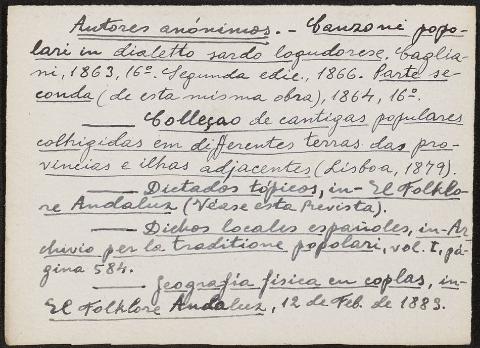 Autores anónimos. - Canzoni popo-
lari in dialetto sardo logudorese. Caglia-
ni, 1863, 16º. Segunda edic., 1866. Parte se-
conda (de esta misma obra), 1864, 16º.
——— Colleçao de cantigas populares
colhigidas em differentes terras das pro-
vincias e ilhas adjacentes (Lisboa, 1879).
——— Dictados tópicos, in- El Folklo-
re Andaluz (Véase esta Revista).
——— Dichos locales españoles, in- Ar-
chivio per la traditione popolari, vol. I, pá-
gina 584.
——— Geografía física en coplas, in-
El Folklore Andaluz, 12 de Feb. de 1883.